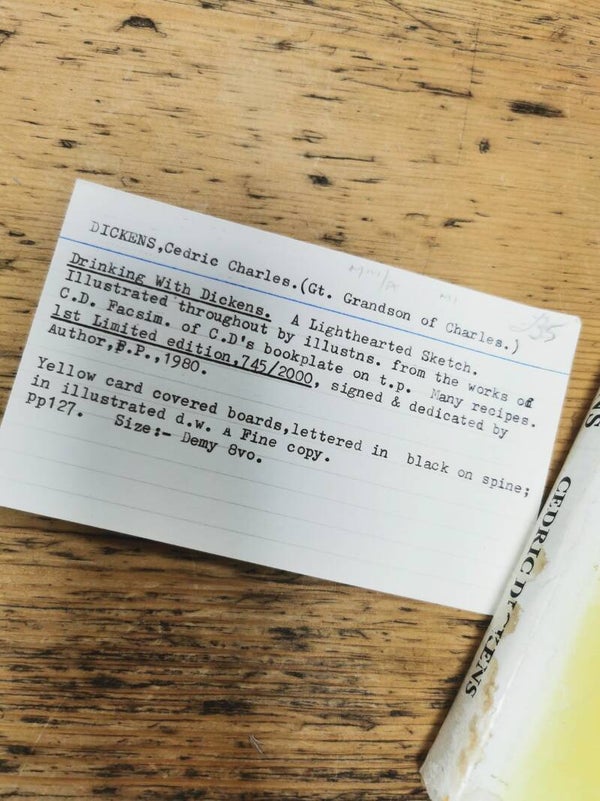 DICKENS,Cedric Charles.(Gt. Grandson of Charles.)
£35
Drinking With Dickens. A Lighthearted Sketch.
Illustrated throughout by illustns. from the works of
C.D. Facsim. of C.D's bookplate on t.p. Many recipes.
1st Limited edition,745/2000, signed & dedicated by
Author,E.P.,1980.
Yellow card covered boards,lettered in black on spine;
in illustrated d.w. A Fine copy.
pp127. Size:- Demy 8vo.
NS
CEDRIC DICKENS